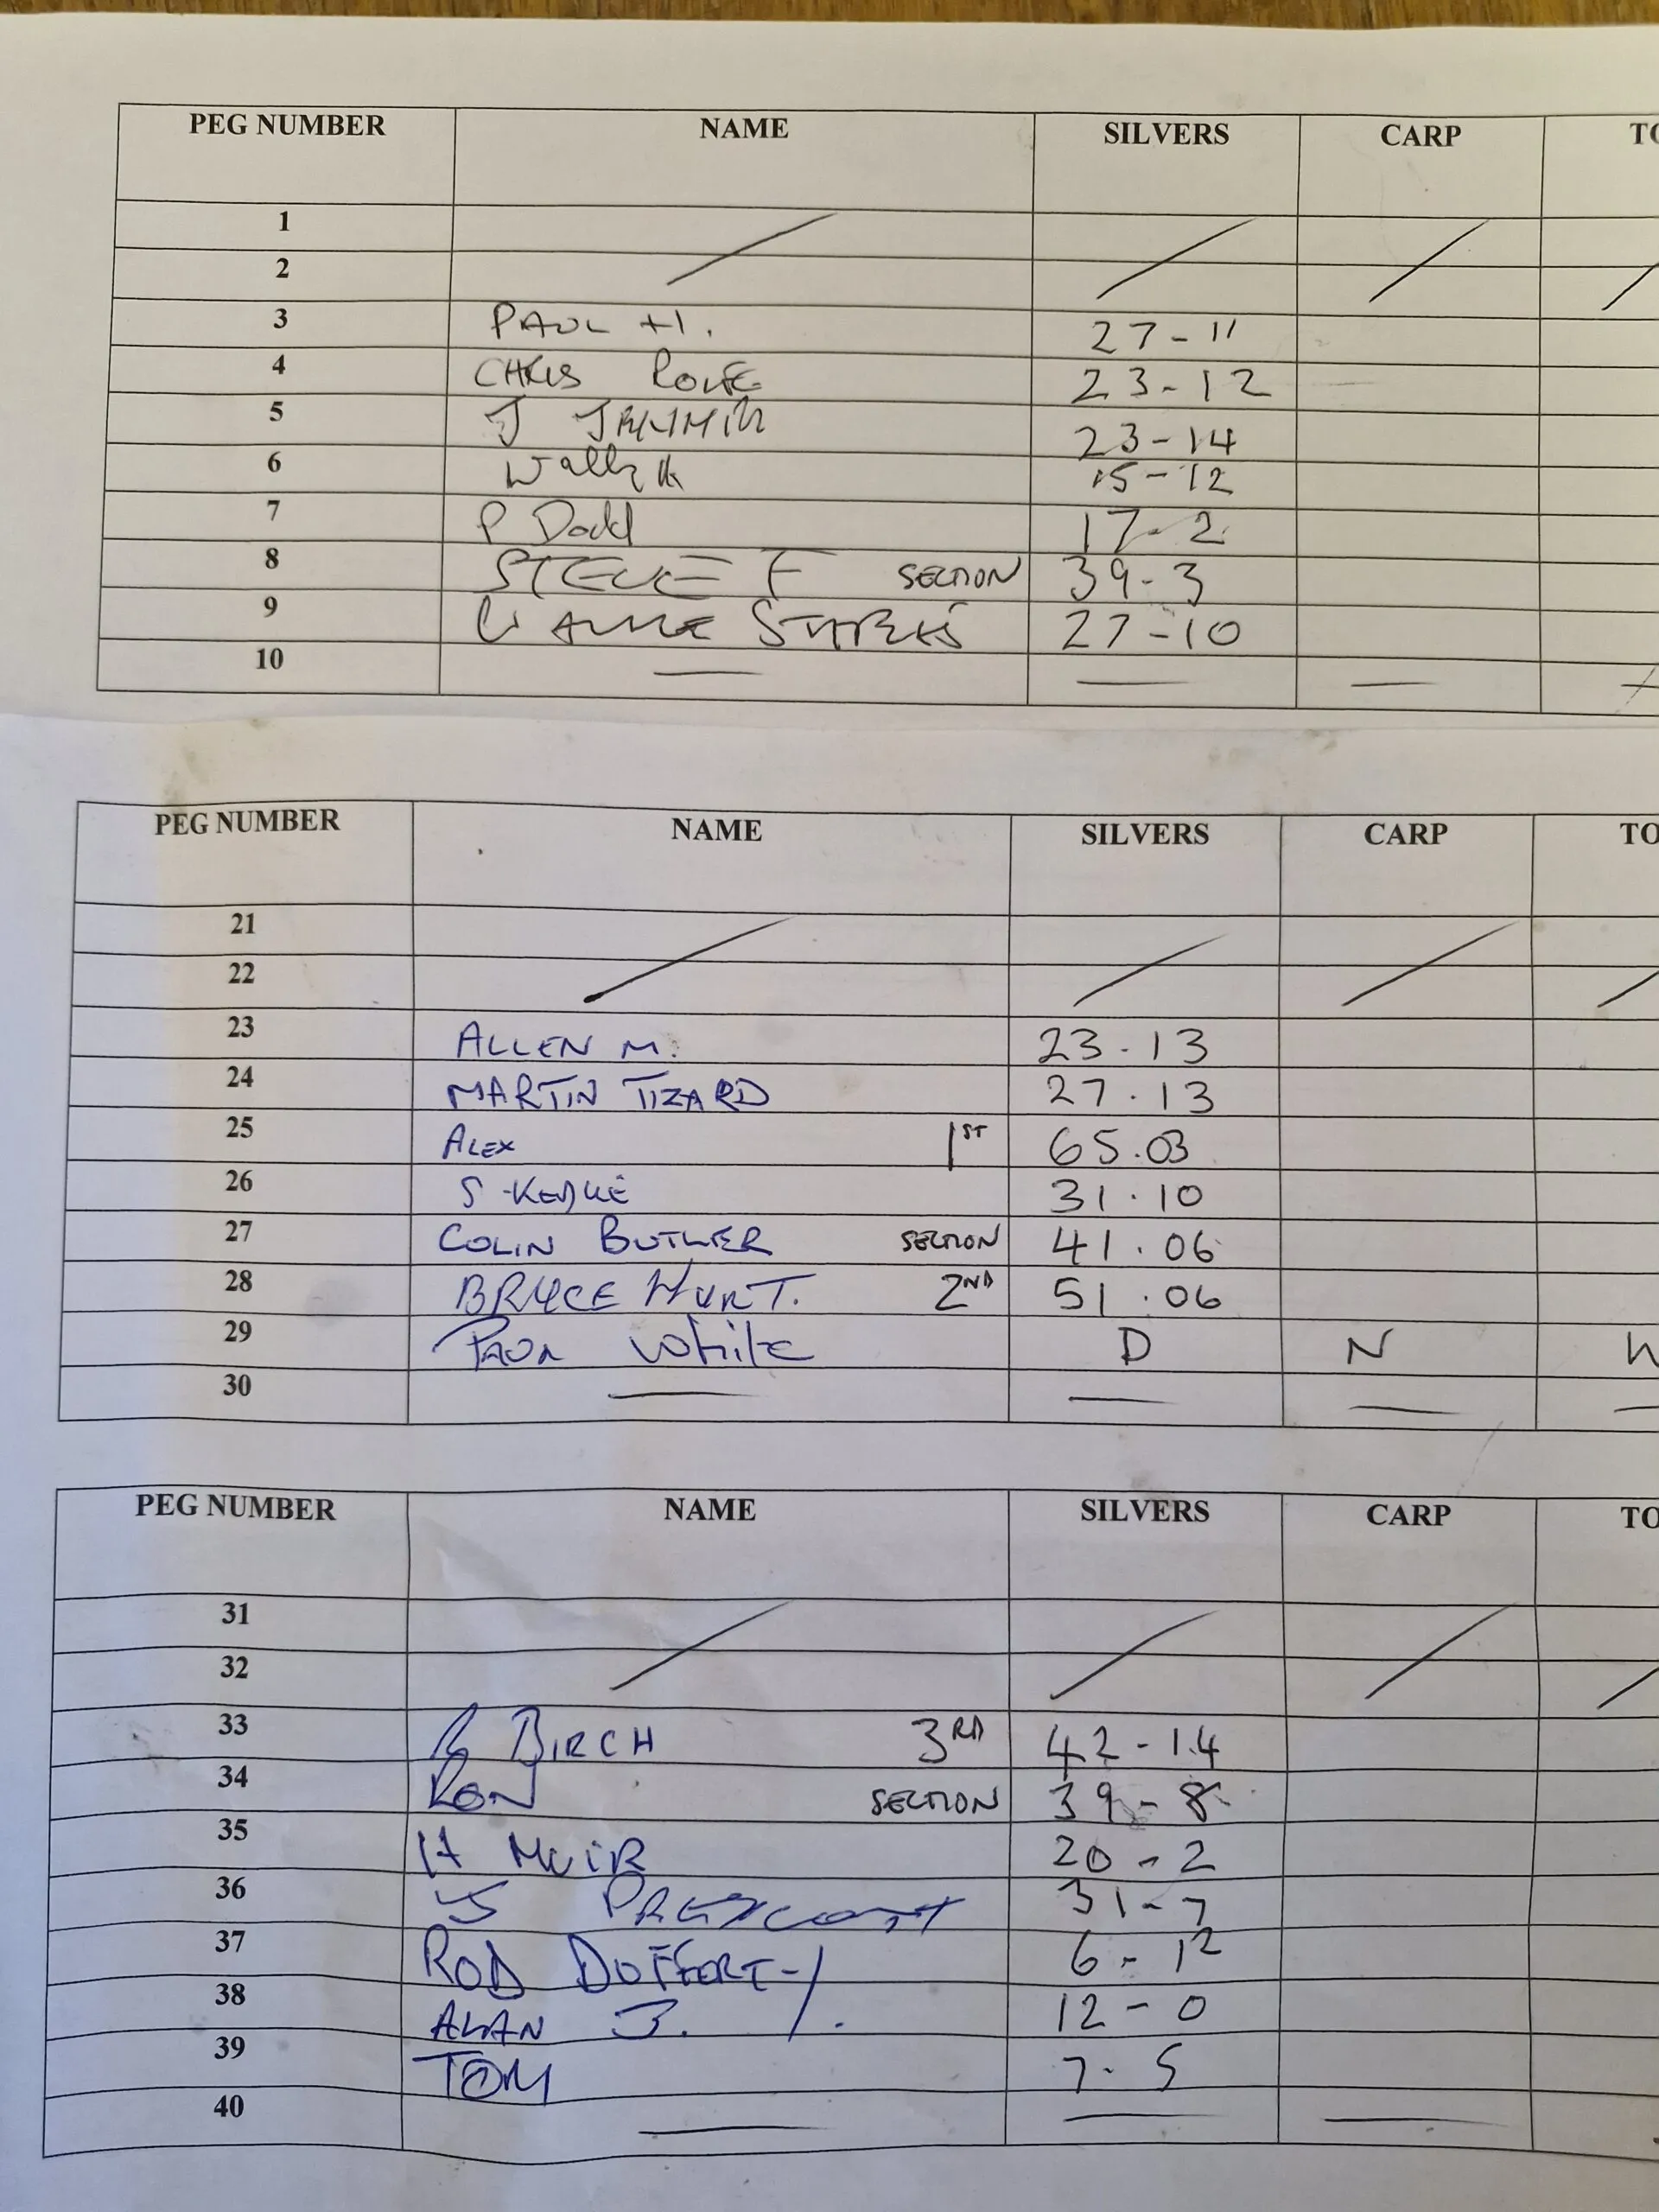 PEG NUMBER NAME SILVERS CARP TO
1
2
3 PAUL H. 27-11
4 CHRIS ROLFE 23-12
5 J 23-14
6 Wally 15-12
7 P Dodd 17-2
8 STEVE F SECTION 39-3
9 27-10
10
PEG NUMBER NAME SILVERS CARP TO
21
22
23 ALLEN M. 23.13
24 MARTIN TIZARD 27.13
25 ALEX 1ST 65.03
26 S 31.10
27 COLIN BUTLER SECTION 41.06
28 BRYCE HURT. 2ND 51.06
29 White D N W
30
PEG NUMBER NAME SILVERS CARP TO
31
32
33 BIRCH 3RD 42-14
34 RON SECTION 39-8
35 H MUIR 20-2
36 31-7
37 ROD 6-12
38 ALAN J. 12-0
39 TOM 7-5
40